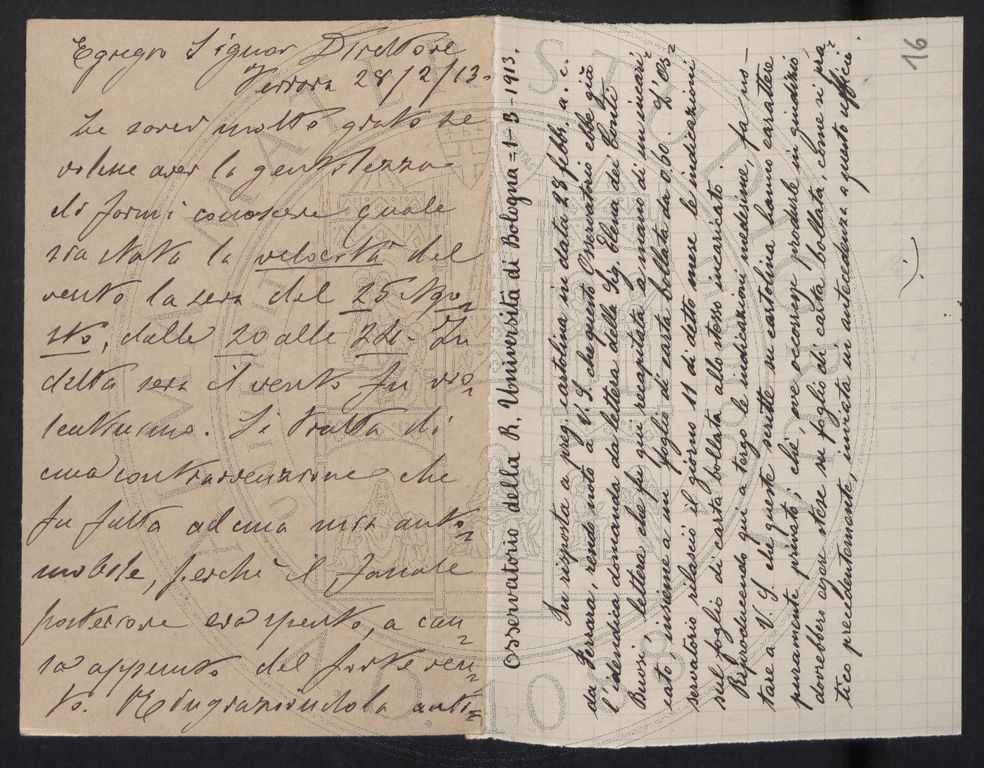 Egregio Signor Direttore
Ferrara 28/2/13-
Le sarei molto grato se
volesse aver la gentilezza
di farmi conoscere quale
sia stata la velocità del
vento la sera del 25 Ago=
sto, dalle 20 alle 22- In
detta sera il vento fu vio=
lentissimo. Si tratta di
una contravvenzione che
fu fatta ad una mia auto=
mobile, perchè il fanale
posteriore era spento, a cau=
sa appunto del forte ven=
to. Ringraziandola anti=
16
Osservatorio della R. Università di Bologna=1-3-1913.
In risposta a preg. cartolina in data 28 febb. a. c.
da Ferrara, rendo noto a V. S. che questo Osservatorio ebbe già
l'identica domanda da lettera della Sig. Elena dei Conti
lettera che fu qui recapitata a mano di un incari=
cato insieme a un foglio di carta bollata da 0,60. L'Os=
servatorio rilasciò il giorno 11 di detto mese le indicazioni
sul foglio di carta bollata allo stesso incaricato.
Riproducendo qui a tergo le indicazioni medesime, fa no-
tare a V. S. che queste scritte su cartolina hanno carattere
puramente privato; chè, ove occoresse produrle in giudizio
dovrebbero essere stese su foglio di carta bollata, come si pra=
ticò precedentemente, inviata in antecedenza a questo ufficio.